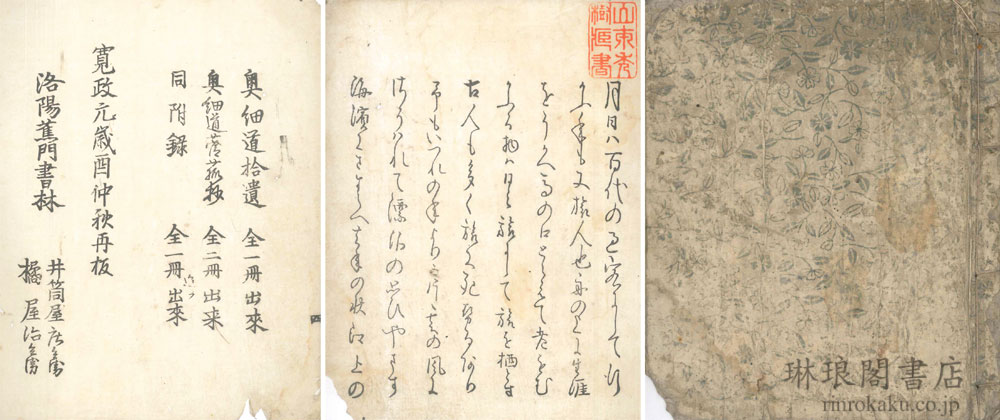 奥細道拾遺 全一冊 出来
奥細道菅菰抄 全二冊 出来
同附録 全一冊 出来
寛政元歳酉仲秋再板
洛陽蕉門書林
井筒屋庄兵衛
橘屋治兵衛
山東秀
樹蔵書
月日ハ百代の過客にして行
かふ年も又旅人也舟の上に生涯
をうかへ馬の口とらえて老をむ
かふる物ハ日々旅にして旅を栖とす
古人も多く旅に死せるあり
予もいつれの年よりか片雲の風に
さそはれて漂泊の思ひやます
海濱にさすらへ去年の秋江上の
琳琅閣書店
rinrokaku.co.jp